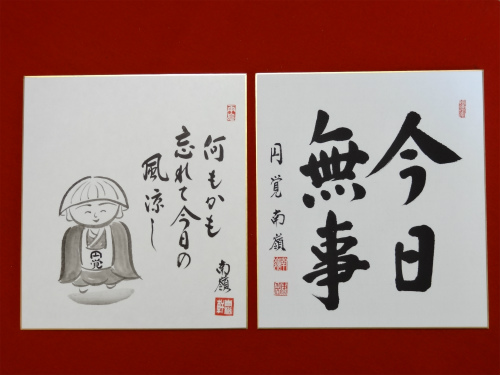 何もかも
忘れて今日の
風涼し
南嶺
円覚
今日
無事
円覚南嶺